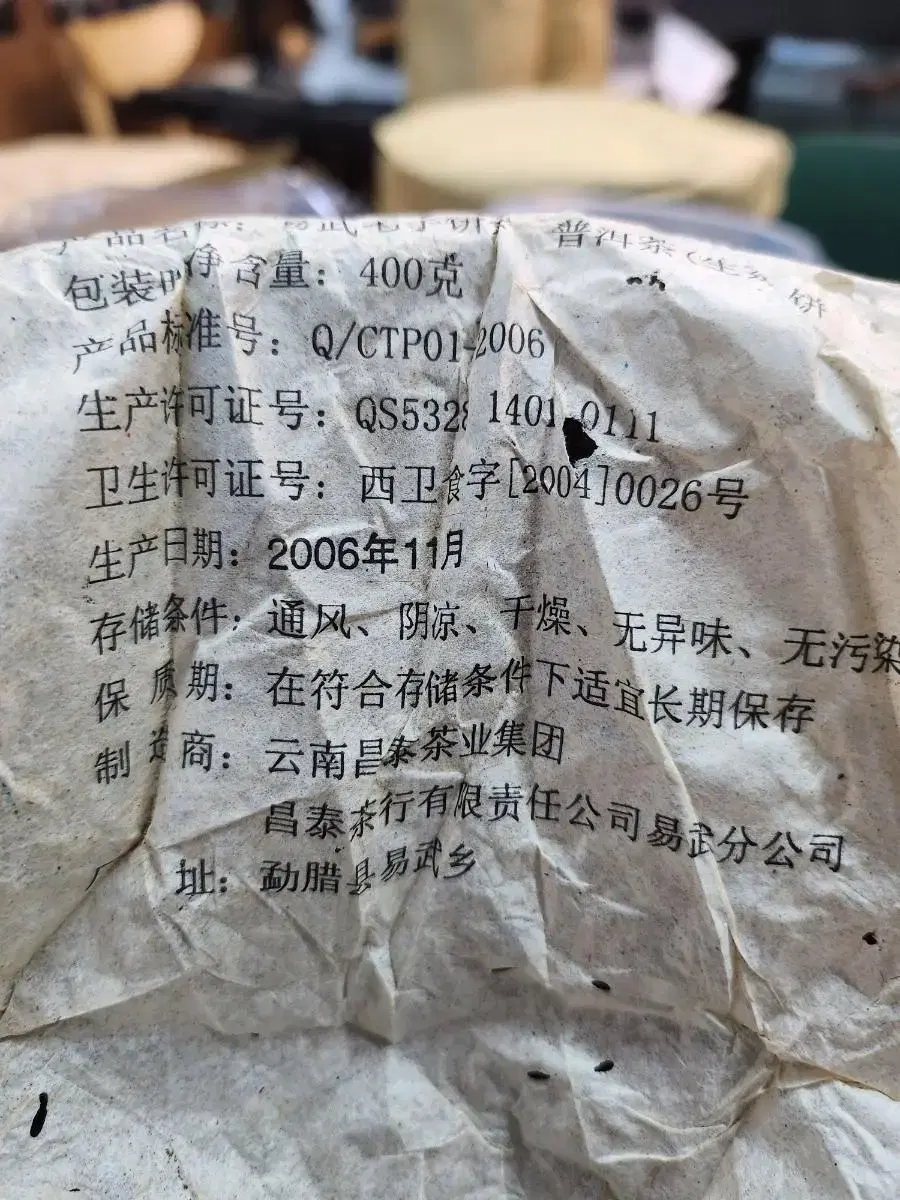 产品名称：易武七子饼 普洱茶(生 饼
包装 净含量：400克
产品标准号：Q/CTP01-2006
生产许可证号：QS532 1401 0111
卫生许可证号：西卫食字[2004]0026号
生产日期：2006年11月
存储条件：通风、阴凉、干燥、无异味、无污染
保质期：在符合存储条件下适宜长期保存
制造商：云南昌泰茶业集团
昌泰茶行有限责任公司易武分公司
址：勐腊县易武乡